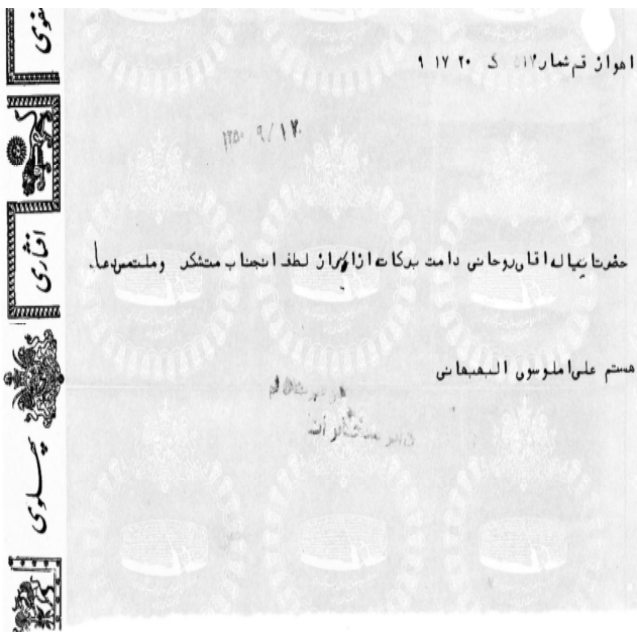 صفوی
اهواز قم شماره ۵۱۲ ک ۲۰ ۱۷ ۹
۱۳۵۰/۹/۱۲
افشاری
حضرتایهاله اقای روحانی دامت برکاته ازابراز لطف انجناب متشکر وملتمس دعا.
هستم علی الموسوی البهبهانی
پهلوی